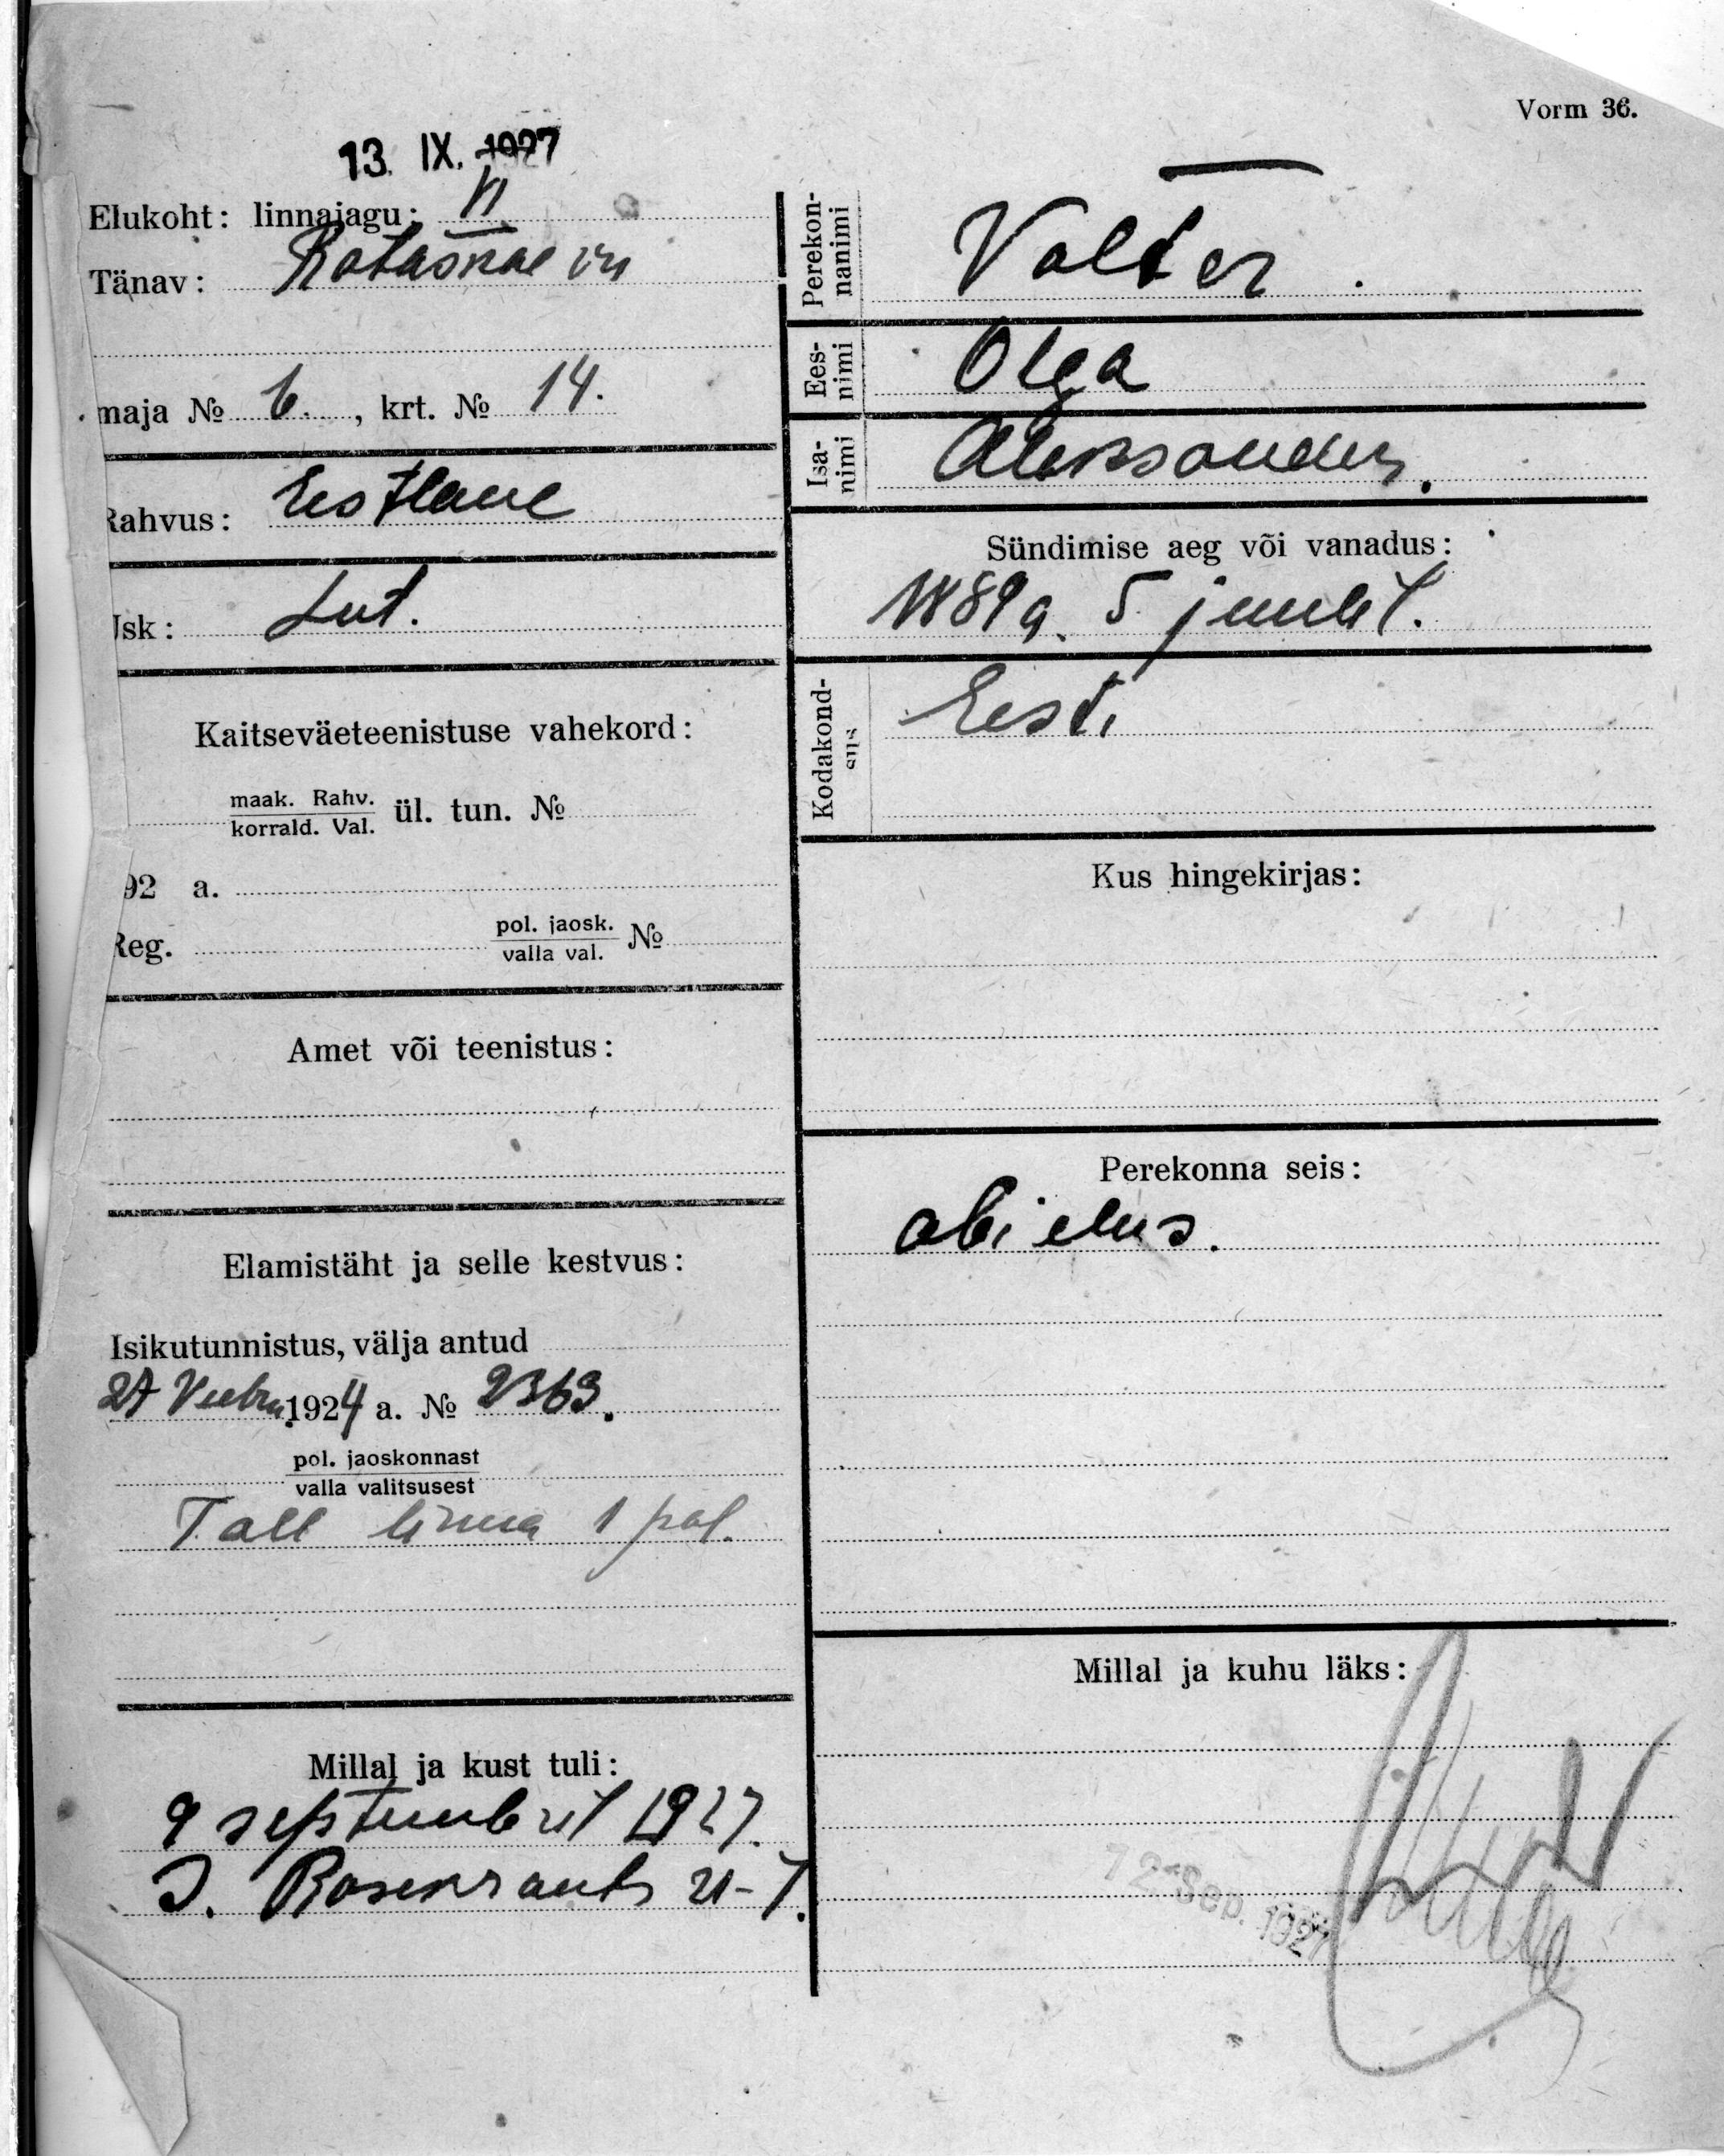 Vorm 36.
13. IX. 1927
Elukoht: linnajagu: VI
Tänav:
maja № 6. , krt. № 14.
Rahvus: Eestlane
Usk: Lut.
Kaitseväeteenistuse vahekord:
maak. Rahv.
korrald. Val. ül. tun. №
92 a.
Reg. pol. jaosk.
valla val. №
Amet või teenistus:
Elamistäht ja selle kestvus:
Isikutunnistus, välja antud
27 Veebru. 1924 a. № 2363.
pol. jaoskonnast
valla valitsusest
Tall linna 1 pol.
Millal ja kust tuli:
9 septembril 1927.
J. Rosenkrants 21-7.
Perekon-
nanimi Valter.
Ees-
nimi Olga
Isa-
nimi Aleksander.
Sündimise aeg või vanadus:
1889 a. 5 juulil.
Kodakond-
sus Eesti
Kus hingekirjas:
Perekonna seis:
abielus.
Millal ja kuhu läks:
12 Sep. 1927